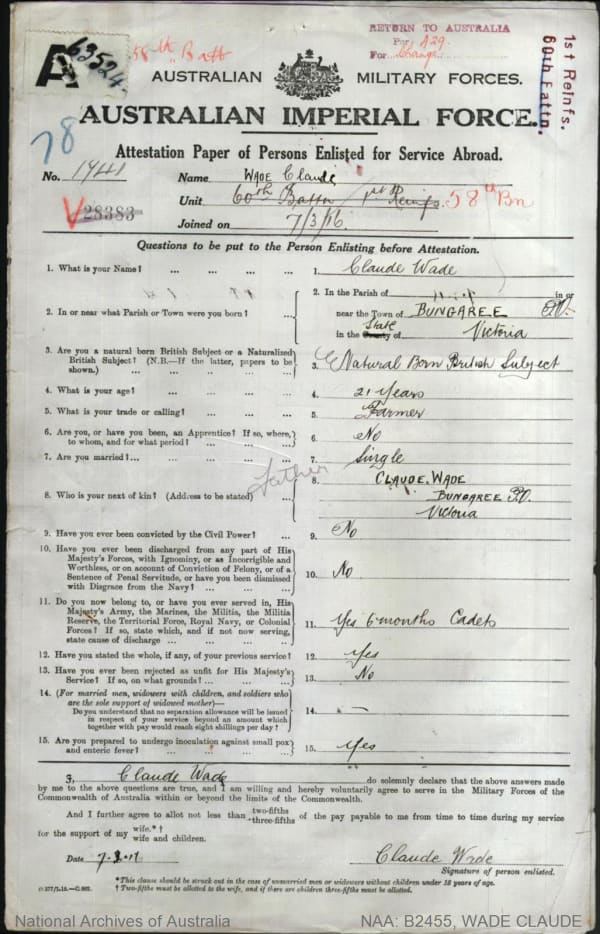 A 63524
58th Batt
RETURN TO AUSTRALIA
Per A29.
For Change
1st Reinfs.
60th Battn.
AUSTRALIAN MILITARY FORCES.
AUSTRALIAN IMPERIAL FORCE.
78
Attestation Paper of Persons Enlisted for Service Abroad.
No. 1941 Name WADE Claude
Unit 60th Battn 1st Reinfs. 58th Bn
V28383
Joined on 7/3/16.
Questions to be put to the Person Enlisting before Attestation.
1. What is your Name? ... ... ... ... 1. Claude Wade
2. In or near what Parish or Town were you born? ... 2. In the Parish of in or
near the Town of BUNGAREE P.O.
in the County of State Victoria
3. Are you a natural born British Subject or a Naturalized
British Subject? (N.B.—If the latter, papers to be
shown.) ... ... ... ... 3. Natural Born British Subject
4. What is your age? ... ... ... ... 4. 21 Years
5. What is your trade or calling? ... ... ... 5. Farmer
6. Are you, or have you been, an Apprentice? If so, where,
to whom, and for what period? ... ... ... 6. No
7. Are you married?... ... ... ... 7. Single
Father
8. Who is your next of kin? (Address to be stated) ... 8. CLAUDE. WADE
BUNGAREE P.O.
Victoria
9. Have you ever been convicted by the Civil Power? ... 9. No
10. Have you ever been discharged from any part of His
Majesty's Forces, with Ignominy, or as Incorrigible and
Worthless, or on account of Conviction of Felony, or of a
Sentence of Penal Servitude, or have you been dismissed
with Disgrace from the Navy? ... ... 10. No
11. Do you now belong to, or have you ever served in, His
Majesty's Army, the Marines, the Militia, the Militia
Reserve, the Territorial Force, Royal Navy, or Colonial
Forces? If so, state which, and if not now serving,
state cause of discharge ... ... ... 11. Yes 6 months Cadets
12. Have you stated the whole, if any, of your previous service? 12. Yes
13. Have you ever been rejected as unfit for His Majesty's
Service? If so, on what grounds? ... ... ... 13. No
14. (For married men, widowers with children, and soldiers who
are the sole support of widowed mother)—
Do you understand that no separation allowance will be issued
in respect of your service beyond an amount which
together with pay would reach eight shillings per day? 14. —
15. Are you prepared to undergo inoculation against small pox
and enteric fever? ... ... ... ... 15. Yes
I, Claude Wade do solemnly declare that the above answers made
by me to the above questions are true, and I am willing and hereby voluntarily agree to serve in the Military Forces of the
Commonwealth of Australia within or beyond the limits of the Commonwealth.
And I further agree to allot not less than two-fifths *three-fifths of the pay payable to me from time to time during my service
for the support of my wife.*† wife and children.
Date 7.3.16 Claude Wade
Signature of person enlisted.
*This clause should be struck out in the case of unmarried men or widowers without children under 18 years of age.
† Two-fifths must be allotted to the wife, and if there are children three-fifths must be allotted.
National Archives of Australia NAA: B2455, WADE CLAUDE